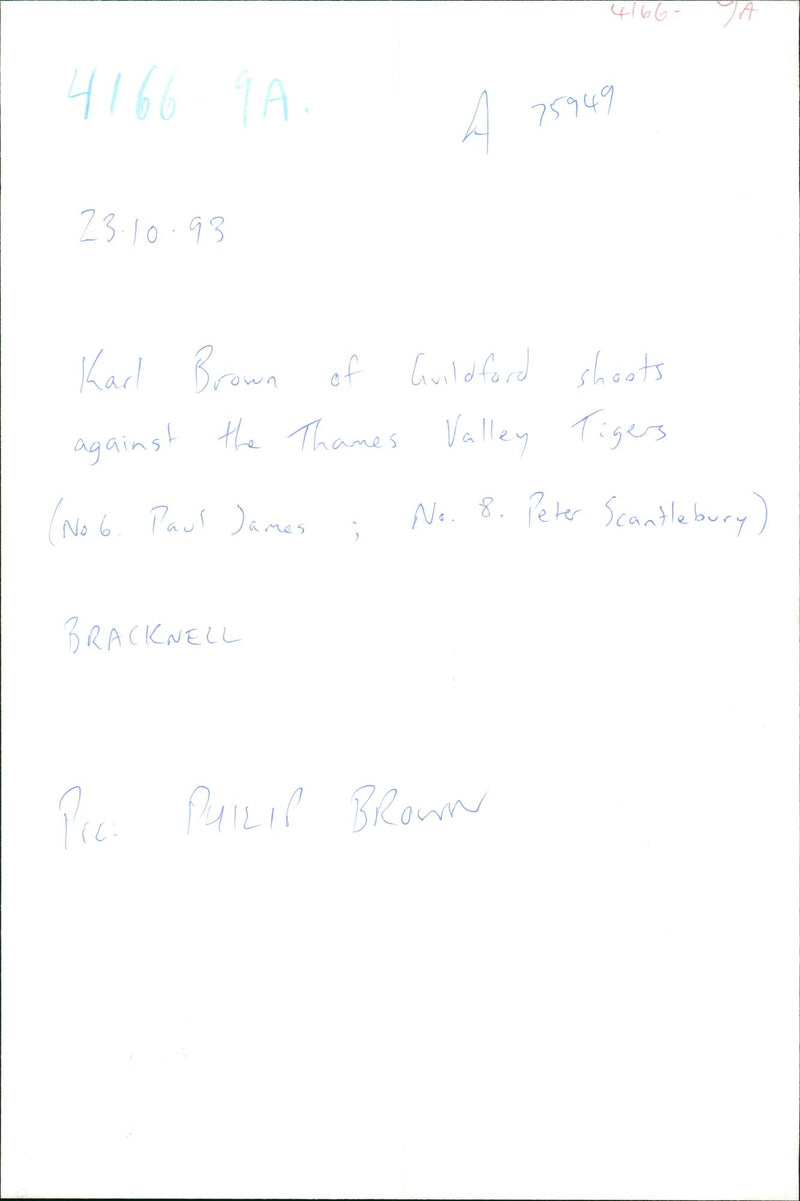 4166- 9A
4166 9A.
A 75949
23.10.93
Karl Brown of Guildford shoots
against the Thames Valley Tigers
(No 6. Paul James ; No. 8. Peter Scantlebury)
BRACKNELL
Pic: PHILIP BROWN